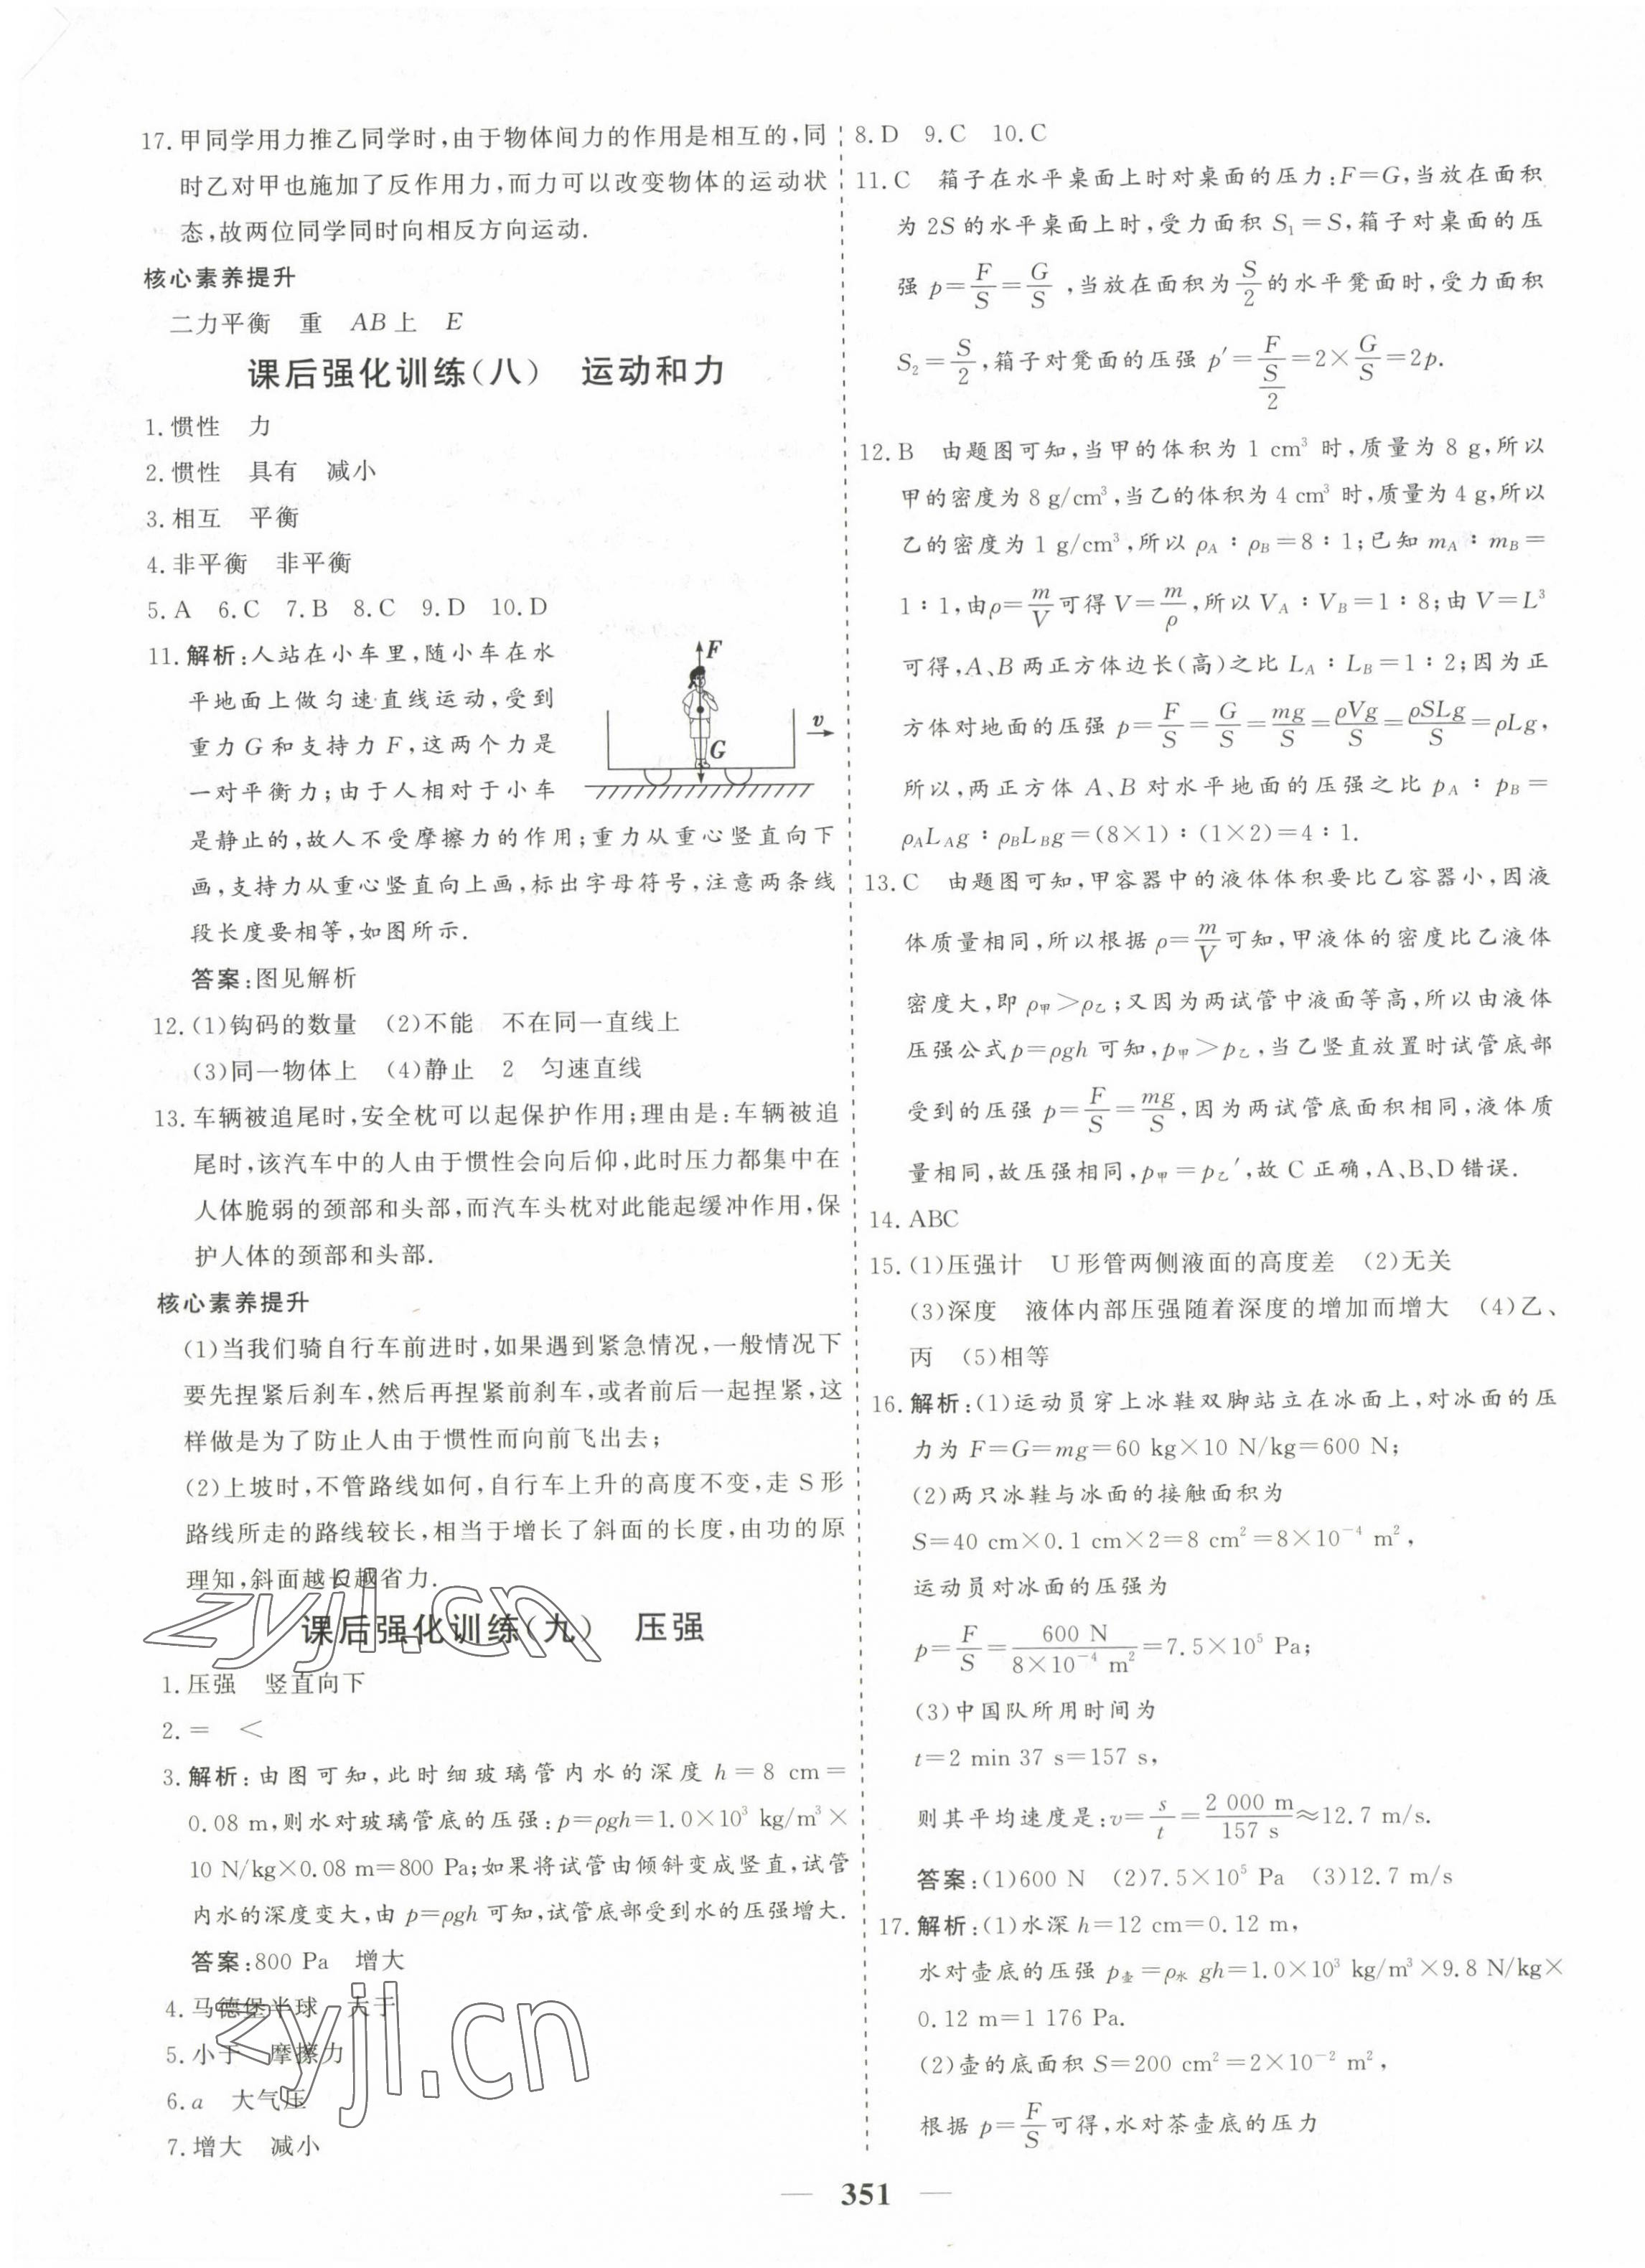 17. 甲同学用力推乙同学时,由于物体间力的作用是相互的,同
时乙对甲也施加了反作用力,而力可以改变物体的运动状
态,故两位同学同时向相反方向运动.
核心素养提升
二力平衡 重 AB上 E
课后强化训练(八) 运动和力
1. 惯性 力
2. 惯性 具有 减小
3. 相互 平衡
4. 非平衡 非平衡
5. A 6. C 7. B 8. C 9. D 10. D
11. 解析:人站在小车里,随小车在水
平地面上做匀速直线运动,受到
重力 G 和支持力 F,这两个力是
一对平衡力;由于人相对于小车
是静止的,故人不受摩擦力的作用;重力从重心竖直向下
画,支持力从重心竖直向上画,标出字母符号,注意两条线
段长度要相等,如图所示.
F
v
G
答案:图见解析
12. (1)钩码的数量 (2)不能 不在同一直线上
(3)同一物体上 (4)静止 2 匀速直线
13. 车辆被追尾时,安全枕可以起保护作用;理由是:车辆被追
尾时,该汽车中的人由于惯性会向后仰,此时压力都集中在
人体脆弱的颈部和头部,而汽车头枕对此能起缓冲作用,保
护人体的颈部和头部.
核心素养提升
(1)当我们骑自行车前进时,如果遇到紧急情况,一般情况下
要先捏紧后刹车,然后再捏紧前刹车,或者前后一起捏紧,这
样做是为了防止人由于惯性而向前飞出去;
(2)上坡时,不管路线如何,自行车上升的高度不变,走 S 形
路线所走的路线较长,相当于增长了斜面的长度,由功的原
理知,斜面越长越省力.
zyjl.cn
课后强化训练(九) 压强
1. 压强 竖直向下
2. = <
3. 解析:由图可知,此时细玻璃管内水的深度 h=8 cm=
0.08 m,则水对玻璃管底的压强:p=ρgh=1.0×10³ kg/m³×
10 N/kg×0.08 m=800 Pa;如果将试管由倾斜变成竖直,试管
内水的深度变大,由 p=ρgh 可知,试管底部受到水的压强增大.
答案:800 Pa 增大
4. 马德堡半球 大于
zyjl.cn
5. 小于 摩擦力
6. a 大气压
7. 增大 减小
8. D 9. C 10. C
11. C 箱子在水平桌面上时对桌面的压力:F=G,当放在面积
为 2S 的水平桌面上时,受力面积 S₁=S,箱子对桌面的压
强 p=F/S=G/S,当放在面积为S/2的水平凳面时,受力面积
S₂=S/2,箱子对凳面的压强 p′=F/(S/2)=2×G/S=2p.
12. B 由题图可知,当甲的体积为 1 cm³ 时,质量为 8 g,所以
甲的密度为 8 g/cm³,当乙的体积为 4 cm³ 时,质量为 4 g,所以
乙的密度为 1 g/cm³,所以 ρA∶ρB=8∶1;已知 mA∶mB=
1∶1,由ρ=m/V可得 V=m/ρ,所以 VA∶VB=1∶8;由 V=L³
可得,A、B 两正方体边长(高)之比 LA∶LB=1∶2;因为正
方体对地面的压强 p=F/S=G/S=mg/S=ρVg/S=ρSLg/S=ρLg,
所以,两正方体 A、B 对水平地面的压强之比 pA∶pB=
ρALAg∶ρBLBg=(8×1)∶(1×2)=4∶1.
13. C 由题图可知,甲容器中的液体体积要比乙容器小,因液
体质量相同,所以根据 ρ=m/V可知,甲液体的密度比乙液体
密度大,即 ρ甲>ρ乙;又因为两试管中液面等高,所以由液体
压强公式 p=ρgh 可知,p甲>p乙,当乙竖直放置时试管底部
受到的压强 p=F/S=mg/S,因为两试管底面积相同,液体质
量相同,故压强相同,p甲=p乙′,故 C 正确,A、B、D 错误.
14. ABC
15. (1)压强计 U 形管两侧液面的高度差 (2)无关
(3)深度 液体内部压强随着深度的增加而增大 (4)乙、
丙 (5)相等
16. 解析:(1)运动员穿上冰鞋双脚站立在冰面上,对冰面的压
力为 F=G=mg=60 kg×10 N/kg=600 N;
(2)两只冰鞋与冰面的接触面积为
S=40 cm×0.1 cm×2=8 cm²=8×10⁻⁴ m²,
运动员对冰面的压强为
p=F/S=600 N/(8×10⁻⁴ m²)=7.5×10⁵ Pa;
(3)中国队所用时间为
t=2 min 37 s=157 s,
则其平均速度是:v=s/t=2 000 m/157 s≈12.7 m/s.
答案:(1)600 N (2)7.5×10⁵ Pa (3)12.7 m/s
17. 解析:(1)水深 h=12 cm=0.12 m,
水对壶底的压强 p壶=ρ水 gh=1.0×10³ kg/m³×9.8 N/kg×
0.12 m=1 176 Pa.
(2)壶的底面积 S=200 cm²=2×10⁻² m²,
根据 p=F/S可得,水对茶壶底的压力
— 351 —